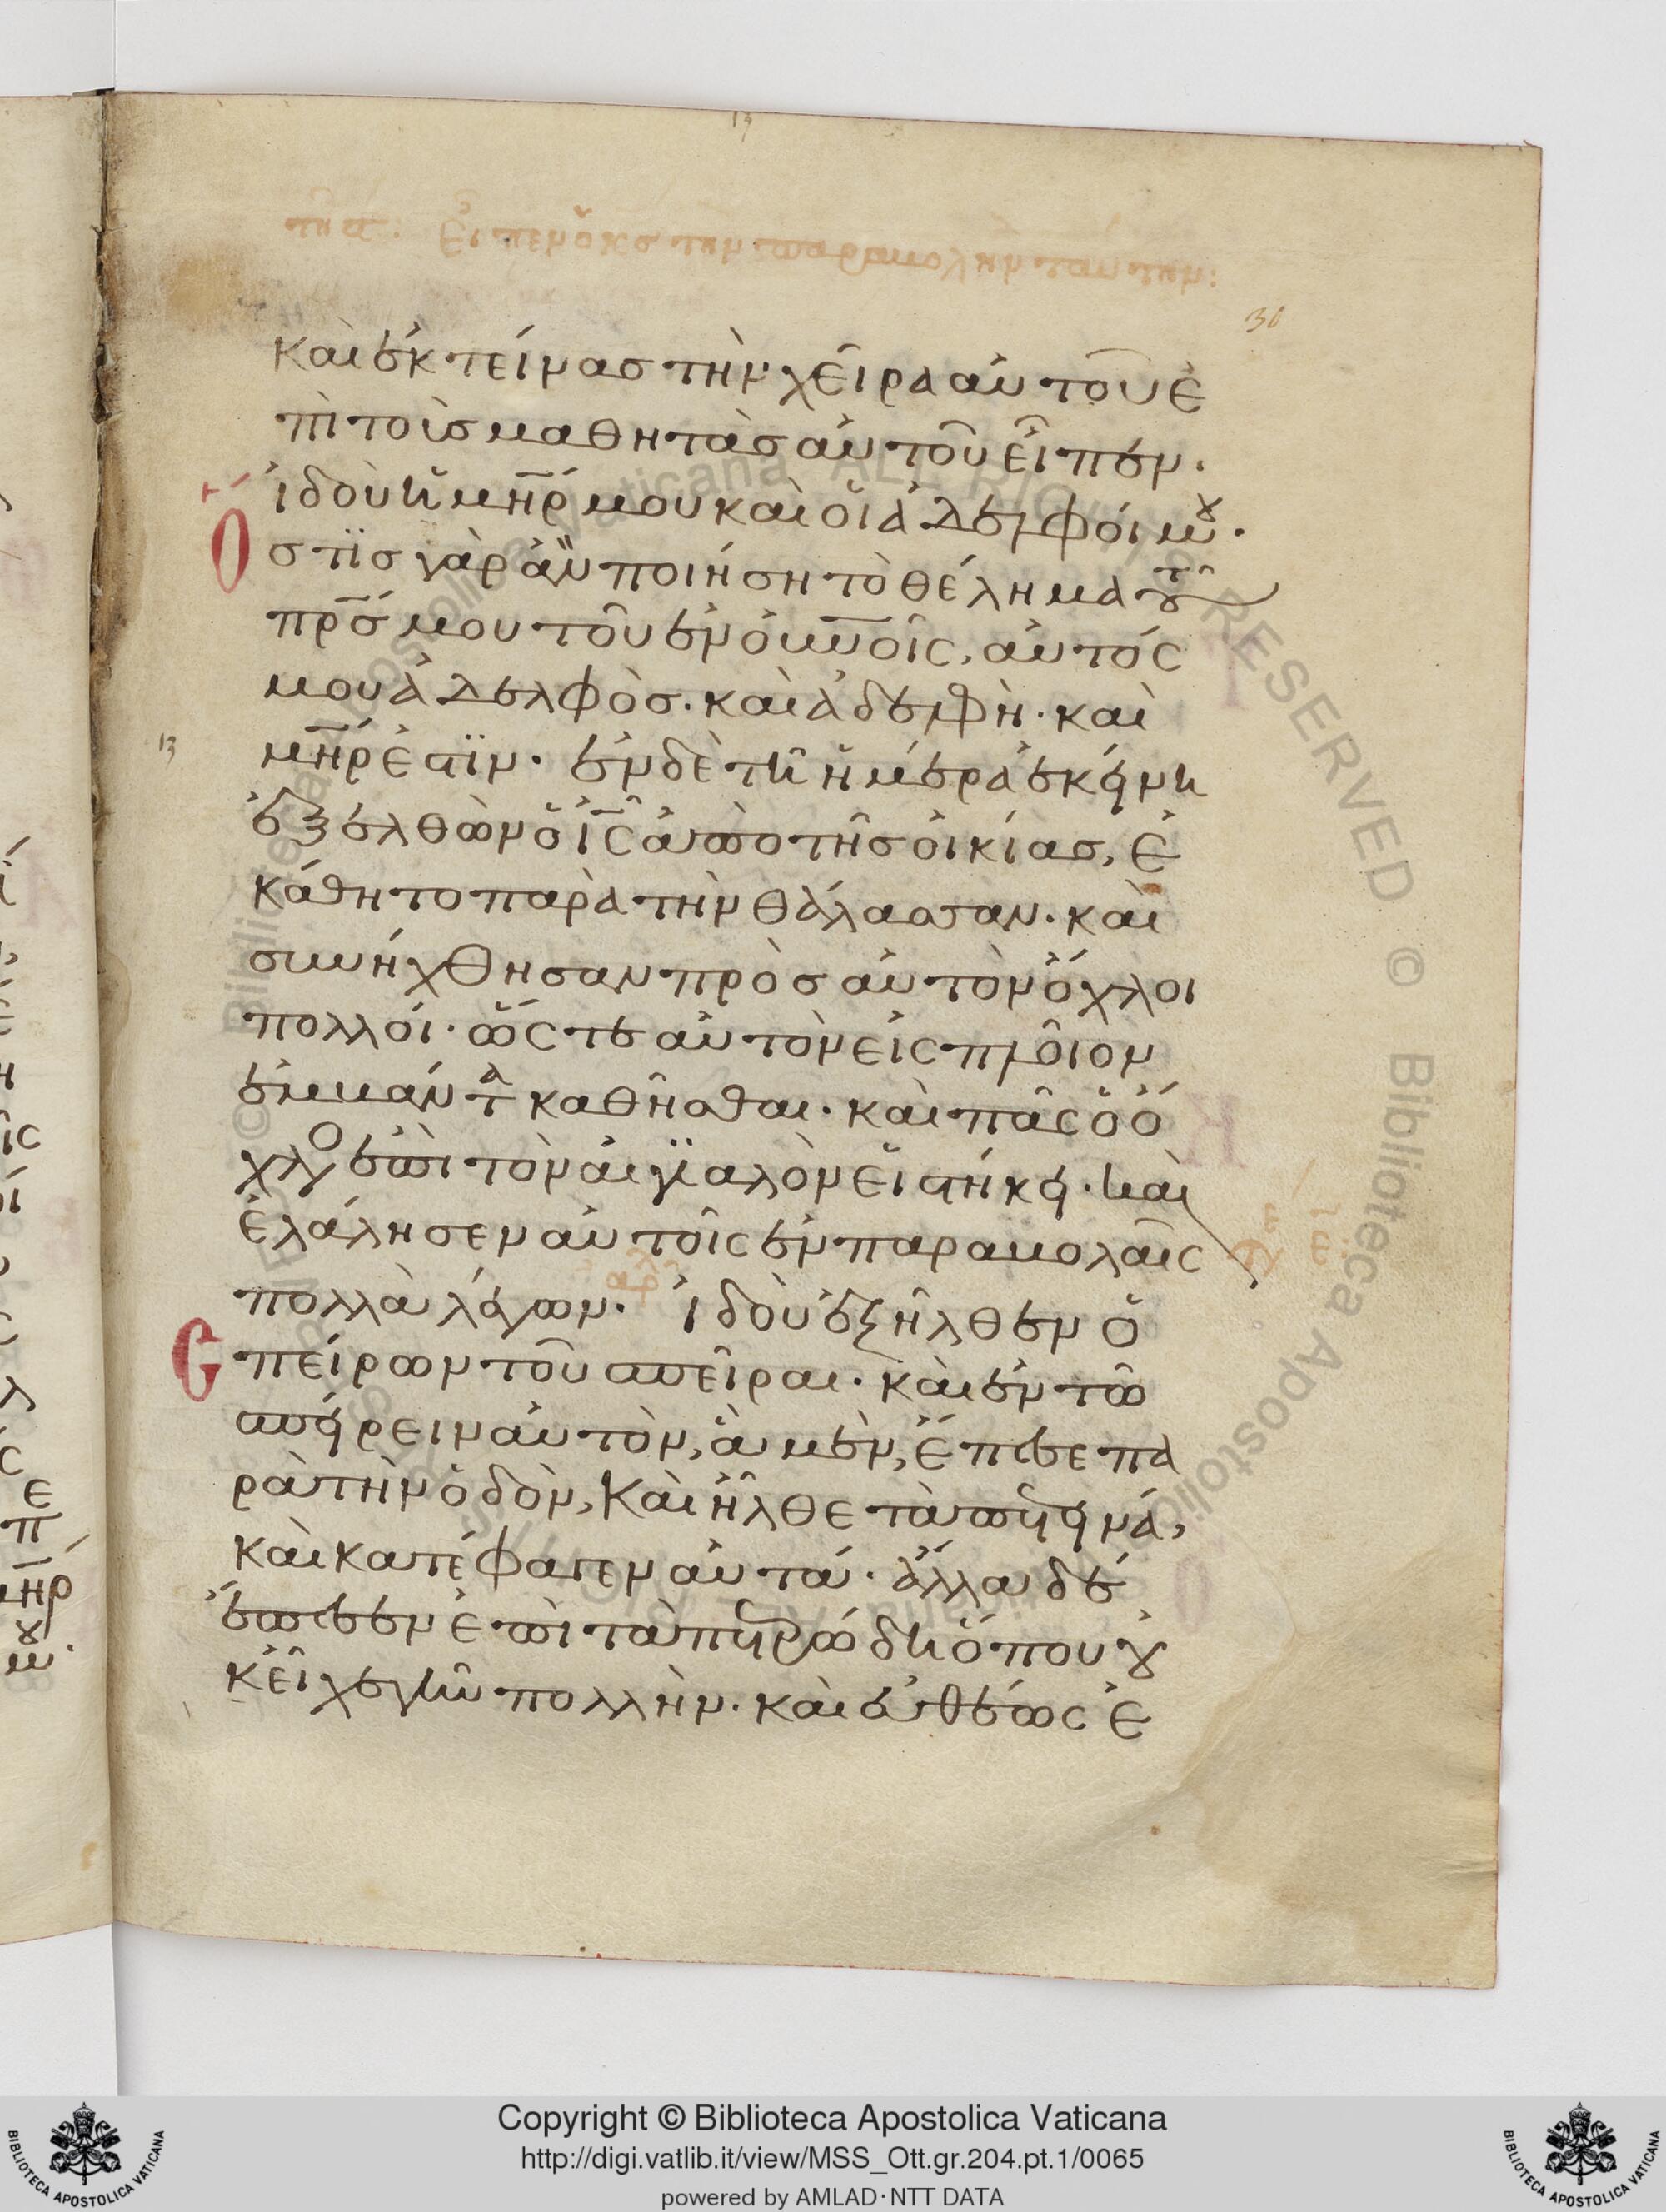 13
30
καὶ ἐκτείνας τὴν χεῖρα αὐτοῦ ἐ
πὶ τοὺς μαθητὰς αὐτοῦ εἶπεν.
ἰδοὺ ἡ μ̅η̅ρ μου καὶ οἱ ἀδελφοί μου.
Ὅ
στϊς γὰρ ἂν ποιήση τὸ θέλημα τοῦ
π̅ρ̅σ μου τοῦ ἐν ὀυ̅ν̅οῖς, αὐτός
μου ἀδελφὸς. καὶ ἀδελφὴ. καὶ
13 μ̅η̅ρ ἐστϊν. ἐν δὲ τῆ ἡμέρα ἐκείνη
ἐξελθὼν ὁ ι̅ς̅ ἀπὸ τῆς οἰκίας, ἐ
κάθητο παρὰ τὴν θάλασσαν. καὶ
συνήχθησαν πρὸς αὐτὸν ὄχλοι
πολλοί. ὥςτε αὐτὸν εἰς πλοῖον
ἐμβάντα καθῆσθαι. καὶ πᾶς ὁ ὄ
χλος ἐπὶ τὸν αἰγϊαλὸν εἱστήκει. καὶ
ἐλάλησεν αὐτοῖς ἐν παραβολαῖς
πολλὰ λέγων. ἰδοὺ ἐξῆλθεν ὁ
σπείρων τοῦ σπεῖραι. καὶ ἐν τῶ
σπείρειν αὐτὸν, ἃ μὲν, ἔπεσε πα
ρὰ τὴν ὁδὸν, καὶ ἦλθε τὰ πετεινά,
καὶ κατέφαγεν αὐτά. ἄλλα δὲ
ἔπεσεν ἐπὶ τὰ πετρώδη ὅπου οὐ
κ εἶχε γῆν πολλὴν. καὶ εὐθέως ἐ
Copyright © Biblioteca Apostolica Vaticana
http://digi.vatlib.it/view/MSS_Ott.gr.204.pt.1/0065
powered by AMLAD·NTT DATA
BIBLIOTECA APOSTOLICA VATICANA
BIBLIOTECA APOSTOLICA VATICANA